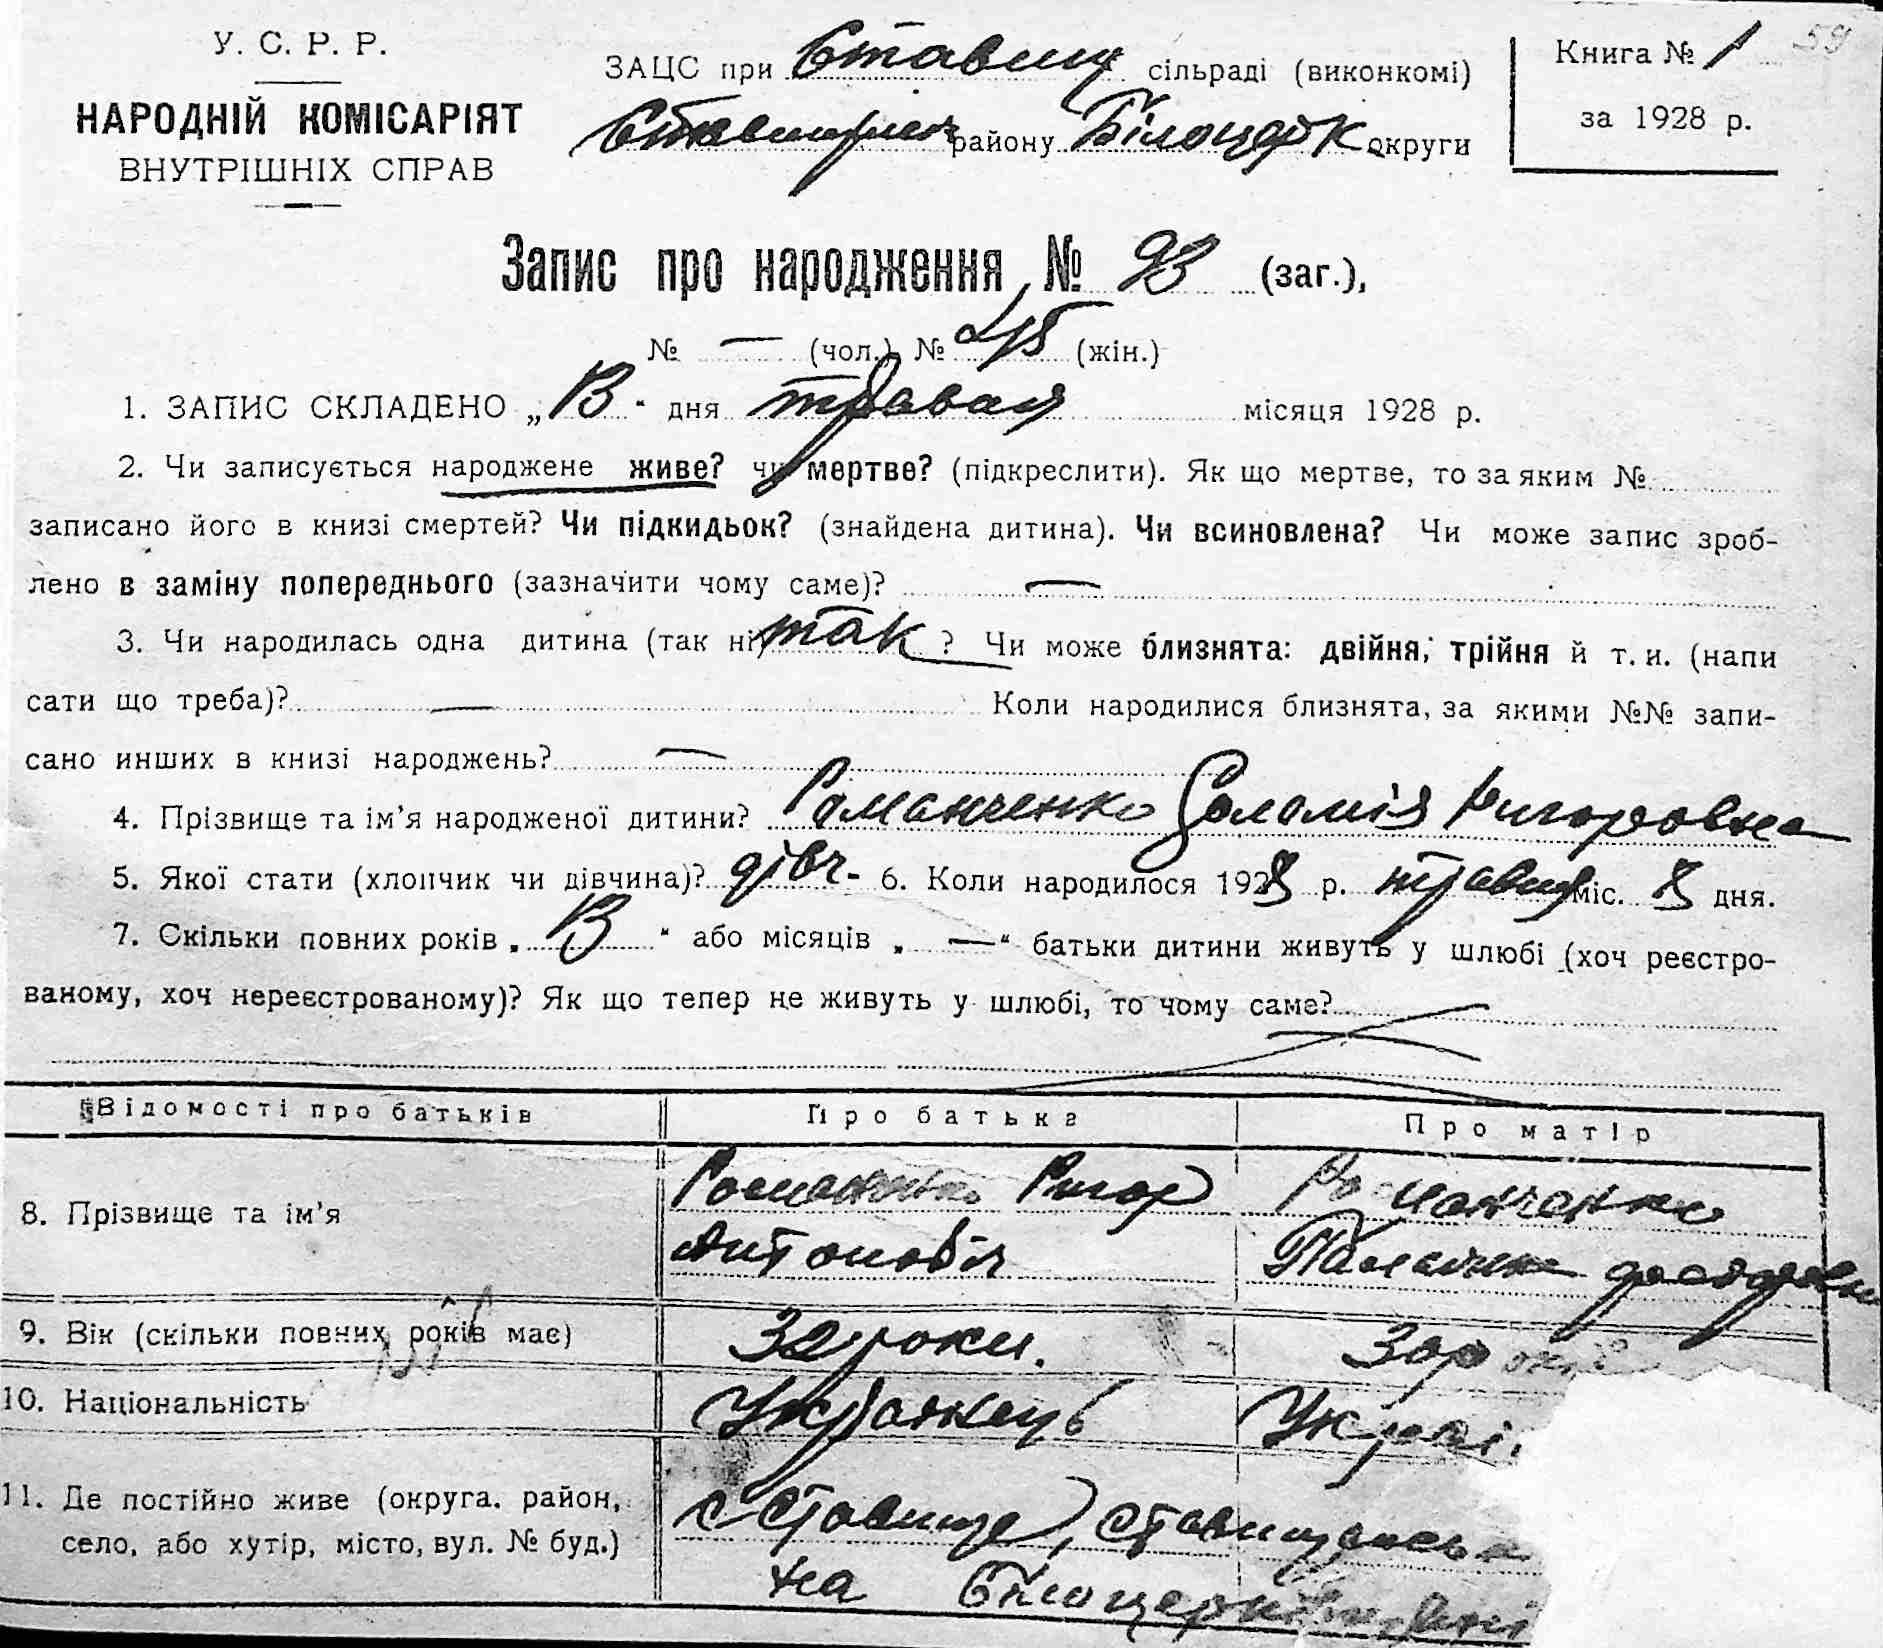 У. С. Р. Р.
НАРОДНІЙ КОМІСАРІЯТ
ВНУТРІШНІХ СПРАВ
ЗАЦС при Ставищ сільраді (виконкомі)
району Білоцерк округи
Книга № 1
59
за 1928 р.
Запис про народження № 93 (заг.),
№ — (чол.) № 45 (жін.)
1. ЗАПИС СКЛАДЕНО „ 13 “ дня травня місяця 1928 р.
2. Чи записується народжене живе? чи мертве? (підкреслити). Як що мертве, то за яким №
записано його в книзі смертей? Чи підкидьок? (знайдена дитина). Чи всиновлена? Чи може запис зроб-
лено в заміну попереднього (зазначити чому саме)? —
3. Чи народилась одна дитина (так ні) так ? Чи може близнята: двійня, трійня й т. и. (напи
сати що треба)? — Коли народилися близнята, за якими №№ запи-
сано инших в книзі народжень? —
4. Прізвище та ім’я народженої дитини? Романченко Соломія Ригоровна
5. Якої стати (хлопчик чи дівчина)? дівч- 6. Коли народилося 1928 р. травня міс. 8 дня.
7. Скільки повних років „ 13 “ або місяців „ — “ батьки дитини живуть у шлюбі (хоч реєстро-
ваному, хоч нереєстрованому)? Як що тепер не живуть у шлюбі, то чому саме?
Відомості про батьків Про батька Про матір
8. Прізвище та ім’я Романченко Ригор Романченко
Антонович
9. Вік (скільки повних років має) 32 роки. 30 років
10. Національність Українець Украї
11. Де постійно живе (округа, район,
село, або хутір, місто, вул. № буд.)
с Ставище, Ставищансько
на